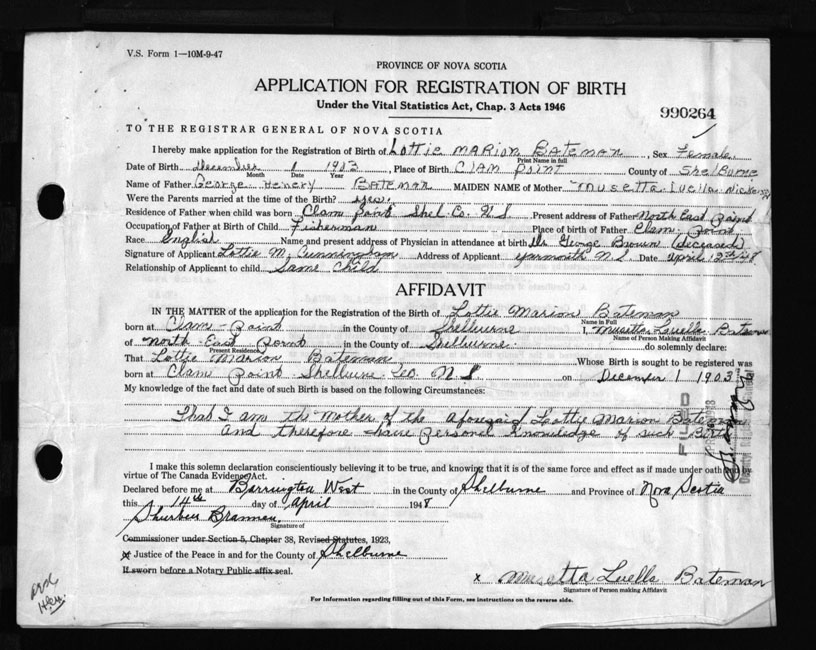 V.S. Form 1—10M-9-47
PROVINCE OF NOVA SCOTIA
APPLICATION FOR REGISTRATION OF BIRTH
Under the Vital Statistics Act, Chap. 3 Acts 1946
990264
TO THE REGISTRAR GENERAL OF NOVA SCOTIA
I hereby make application for the Registration of Birth of Lottie MARION BATEMAN, Sex Female
Print Name in full
Date of Birth December 1 1903, Place of Birth CLAM POINT County of Shelburne
Month Date Year
Name of Father George Henery BATEMAN MAIDEN NAME of Mother Musetta Luella Nickerson
Were the Parents married at the time of Birth? yes.
Residence of Father when child was born Clam Point Shel. Co. N.S. Present address of Father North East Point
Occupation of Father at Birth of Child Fisherman Place of birth of Father Clam Point
Race English Name and present address of Physician in attendance at birth Dr George Brown (deceased)
Signature of Applicant Lottie M. Cunningham Address of Applicant Yarmouth N.S. Date April 12th/48
Relationship of Applicant to child Same Child
AFFIDAVIT
IN THE MATTER of the application for the Registration of the Birth of Lottie Marion Bateman
Name in Full
born at Clam-Point in the County of Shelburne I, Musetta Luella Bateman
Name of Person Making Affidavit
of North East Point in the County of Shelburne do solemnly declare:
Present Residence
That Lottie Marion Bateman Whose Birth is sought to be registered was
born at Clam Point Shelburne Co N.S. on December 1 1903
My knowledge of the fact and date of such Birth is based on the following Circumstances:
That I am the Mother of the aforesaid Lottie Marion Bateman
And therefore have personal knowledge of such Birth
FILED
I make this solemn declaration conscientiously believing it to be true, and knowing that it is of the same force and effect as if made under oath and by
virtue of The Canada Evidence Act.
Declared before me at Barrington West in the County of Shelburne and Province of Nova Scotia
this 14th day of April 1948
Brannen
Signature of
Commissioner under Section 5, Chapter 38, Revised Statutes, 1923,
x Justice of the Peace in and for the County of Shelburne
If sworn before a Notary Public affix seal.
x Musetta Luella Bateman
Signature of Person making Affidavit
For Information regarding filling out of this Form, see instructions on the reverse side.